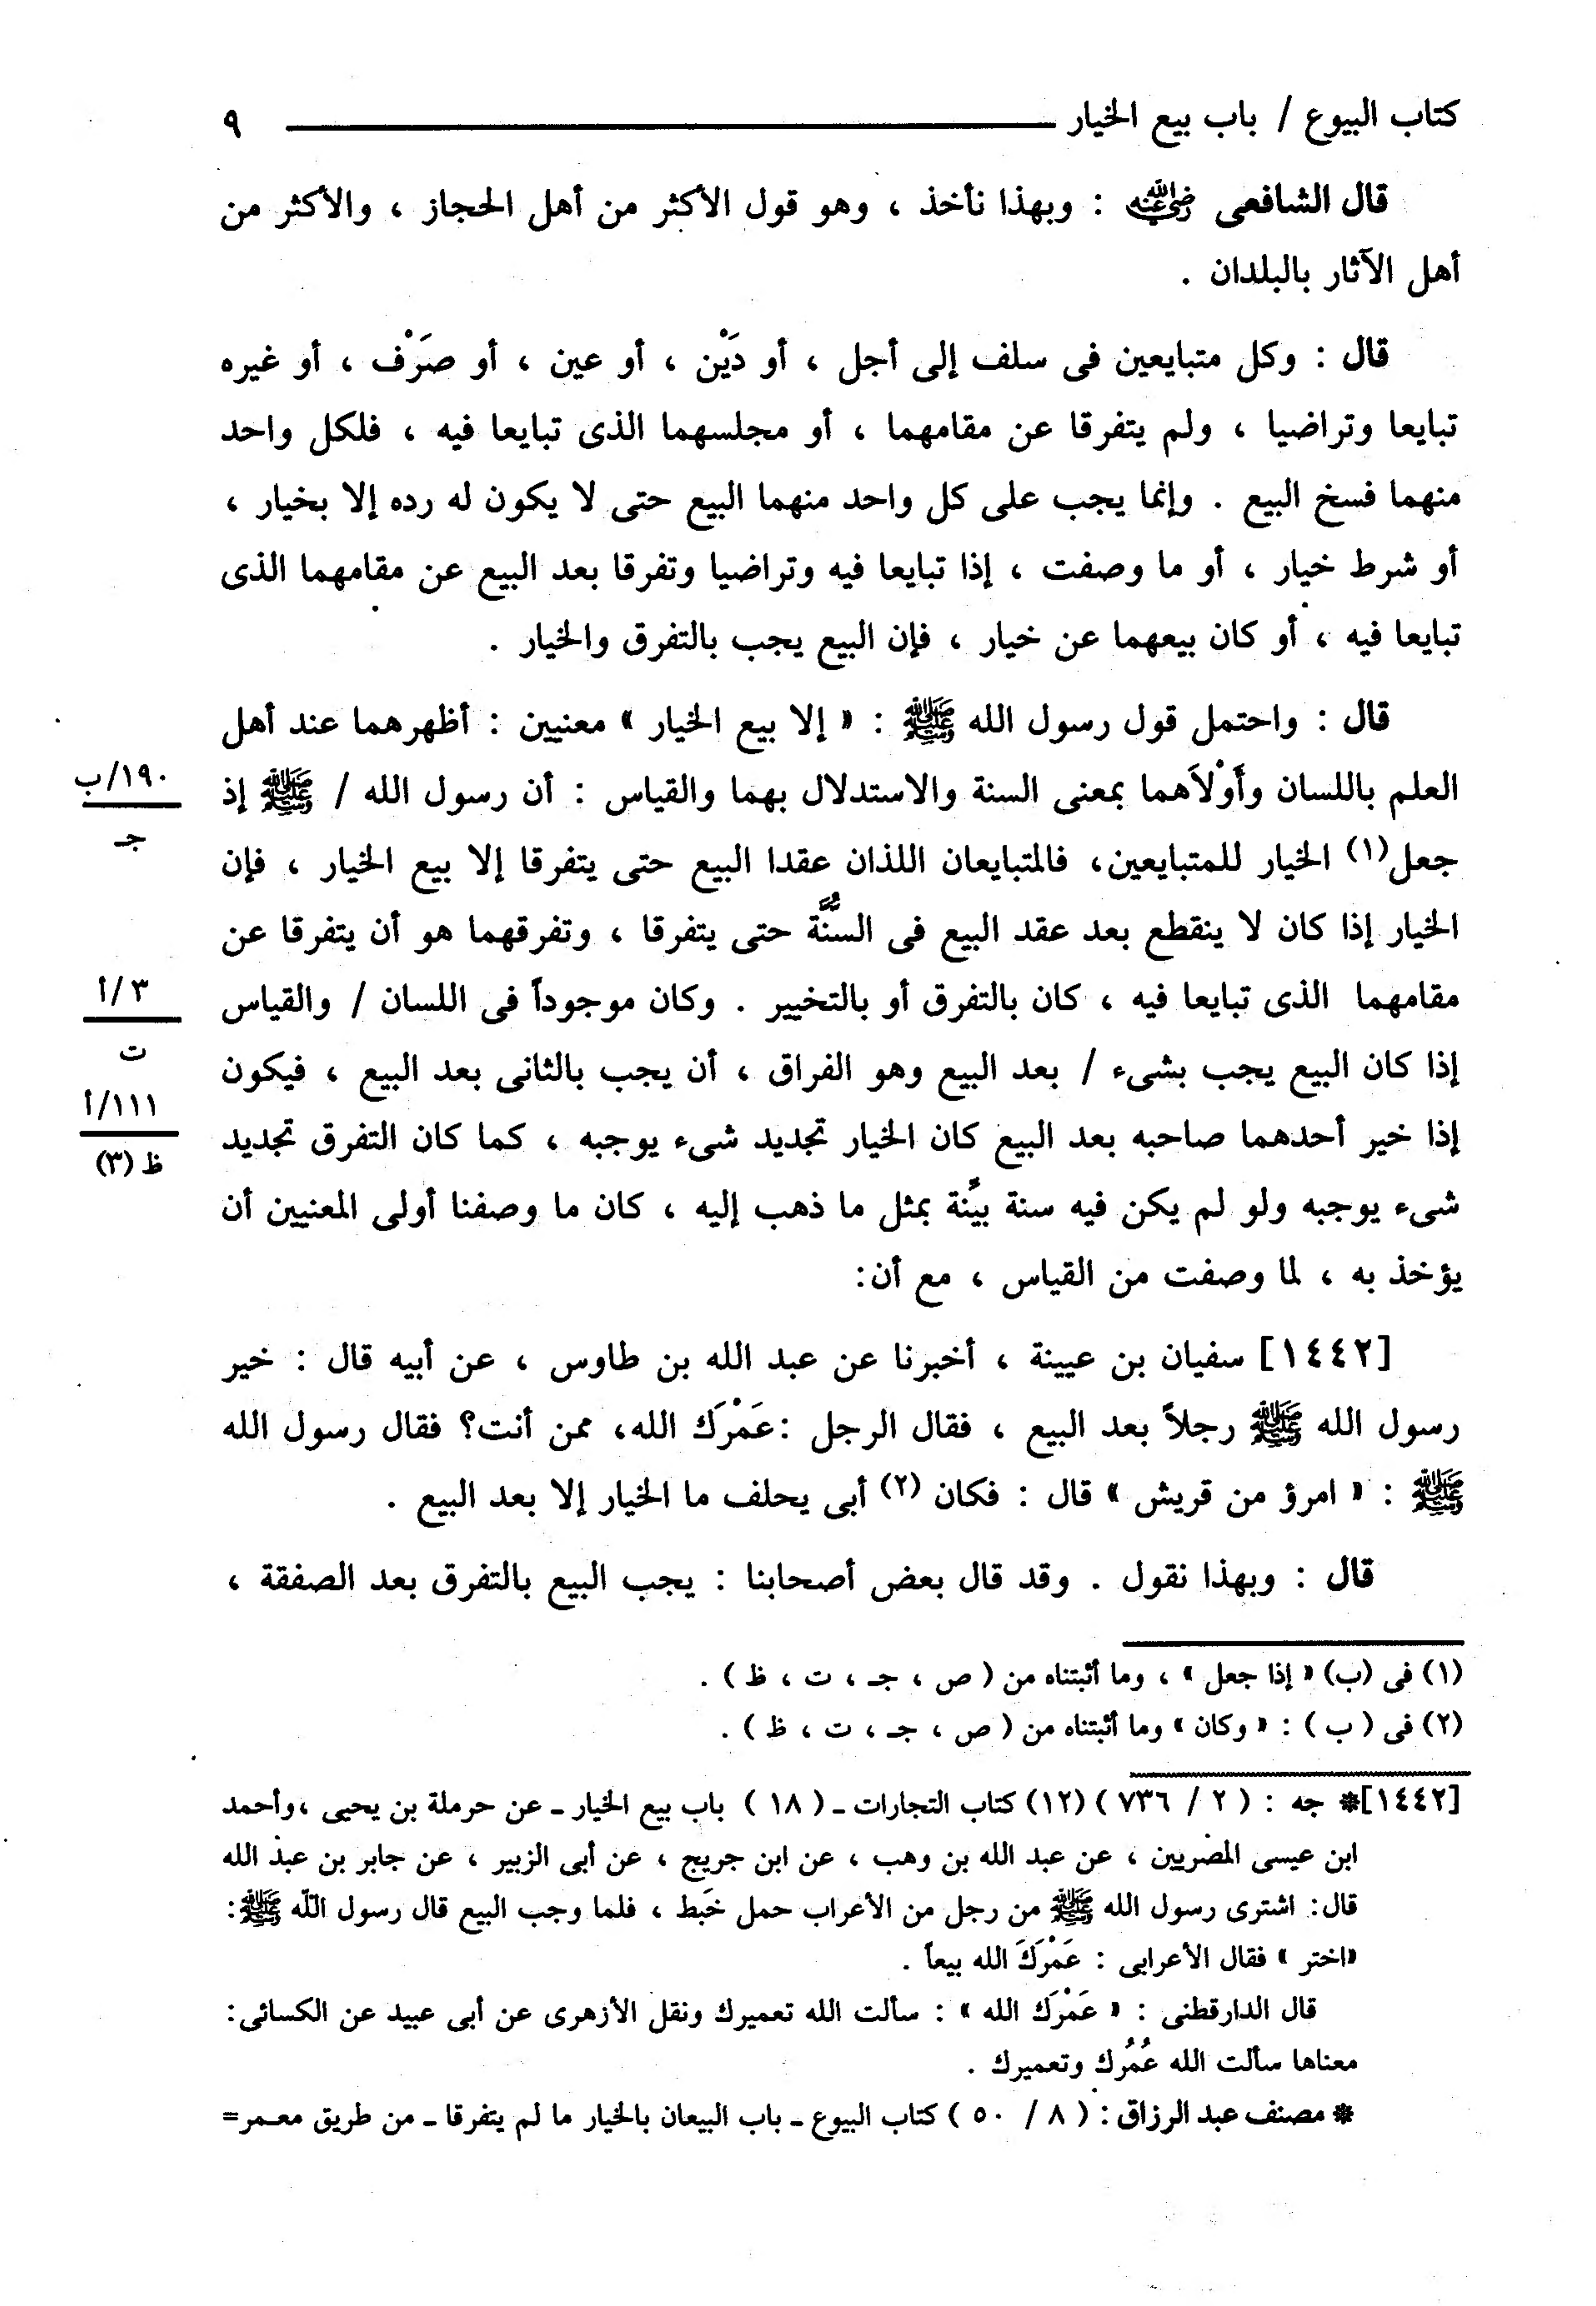 كتاب البيوع / باب بيع الخيار ــــــــ ٩
قال الشافعى رضي الله عنه : وبهذا نأخذ ، وهو قول الأكثر من أهل الحجاز ، والأكثر من
أهل الآثار بالبلدان .
قال : وكل متبايعين فى سلف إلى أجل ، أو دَيْن ، أو عين ، أو صَرْف ، أو غيره
تبايعا وتراضيا ، ولم يتفرقا عن مقامهما ، أو مجلسهما الذى تبايعا فيه ، فلكل واحد
منهما فسخ البيع . وإنما يجب على كل واحد منهما البيع حتى لا يكون له رده إلا بخيار ،
أو شرط خيار ، أو ما وصفت ، إذا تبايعا فيه وتراضيا وتفرقا بعد البيع عن مقامهما الذى
تبايعا فيه ، أو كان بيعهما عن خيار ، فإن البيع يجب بالتفرق والخيار .
قال : واحتمل قول رسول الله ﷺ : « إلا بيع الخيار » معنيين : أظهرهما عند أهل
العلم باللسان وأَوْلاَهما بمعنى السنة والاستدلال بهما والقياس : أن رسول الله / ﷺ إذ
١٩٠/ب
جـ
جعل(١) الخيار للمتبايعين، فالمتبايعان اللذان عقدا البيع حتى يتفرقا إلا بيع الخيار ، فإن
الخيار إذا كان لا ينقطع بعد عقد البيع فى السُّنَّة حتى يتفرقا ، وتفرقهما هو أن يتفرقا عن
مقامهما الذى تبايعا فيه ، كان بالتفرق أو بالتخيير . وكان موجوداً فى اللسان / والقياس
٣/أ
ت
إذا كان البيع يجب بشىء / بعد البيع وهو الفراق ، أن يجب بالثانى بعد البيع ، فيكون
١١١/أ
ظ (٣)
إذا خير أحدهما صاحبه بعد البيع كان الخيار تجديد شىء يوجبه ، كما كان التفرق تجديد
شىء يوجبه ولو لم يكن فيه سنة بيِّنة بمثل ما ذهب إليه ، كان ما وصفنا أولى المعنيين أن
يؤخذ به ، لما وصفت من القياس ، مع أن:
[١٤٤٢] سفيان بن عيينة ، أخبرنا عن عبد الله بن طاوس ، عن أبيه قال : خير
رسول الله ﷺ رجلاً بعد البيع ، فقال الرجل :عَمْرَك الله، ممن أنت؟ فقال رسول الله
ﷺ : « امرؤ من قريش » قال : فكان (٢) أبى يحلف ما الخيار إلا بعد البيع .
قال : وبهذا نقول . وقد قال بعض أصحابنا : يجب البيع بالتفرق بعد الصفقة ،
(١) فى (ب) « إذا جعل » ، وما أثبتناه من ( ص ، جـ ، ت ، ظ ) .
(٢) فى ( ب ) : « وكان » وما أثبتناه من ( ص ، جـ ، ت ، ظ ) .
[١٤٤٢]* جه : ( ٢ / ٧٣٦ ) (١٢) كتاب التجارات ـ ( ١٨ ) باب بيع الخيار ـ عن حرملة بن يحيى ،وأحمد
ابن عيسى المصريين ، عن عبد الله بن وهب ، عن ابن جريج ، عن أبى الزبير ، عن جابر بن عبد الله
قال: اشترى رسول الله ﷺ من رجل من الأعراب حمل خَبط ، فلما وجب البيع قال رسول الله ﷺ:
«اختر » فقال الأعرابى : عَمْرَكَ الله بيعاً .
قال الدارقطنى : « عَمْرَك الله » : سألت الله تعميرك ونقل الأزهرى عن أبى عبيد عن الكسائى:
معناها سألت الله عُمُرك وتعميرك .
* مصنف عبد الرزاق : ( ٨ / ٥٠ ) كتاب البيوع ـ باب البيعان بالخيار ما لم يتفرقا ـ من طريق معـمر=